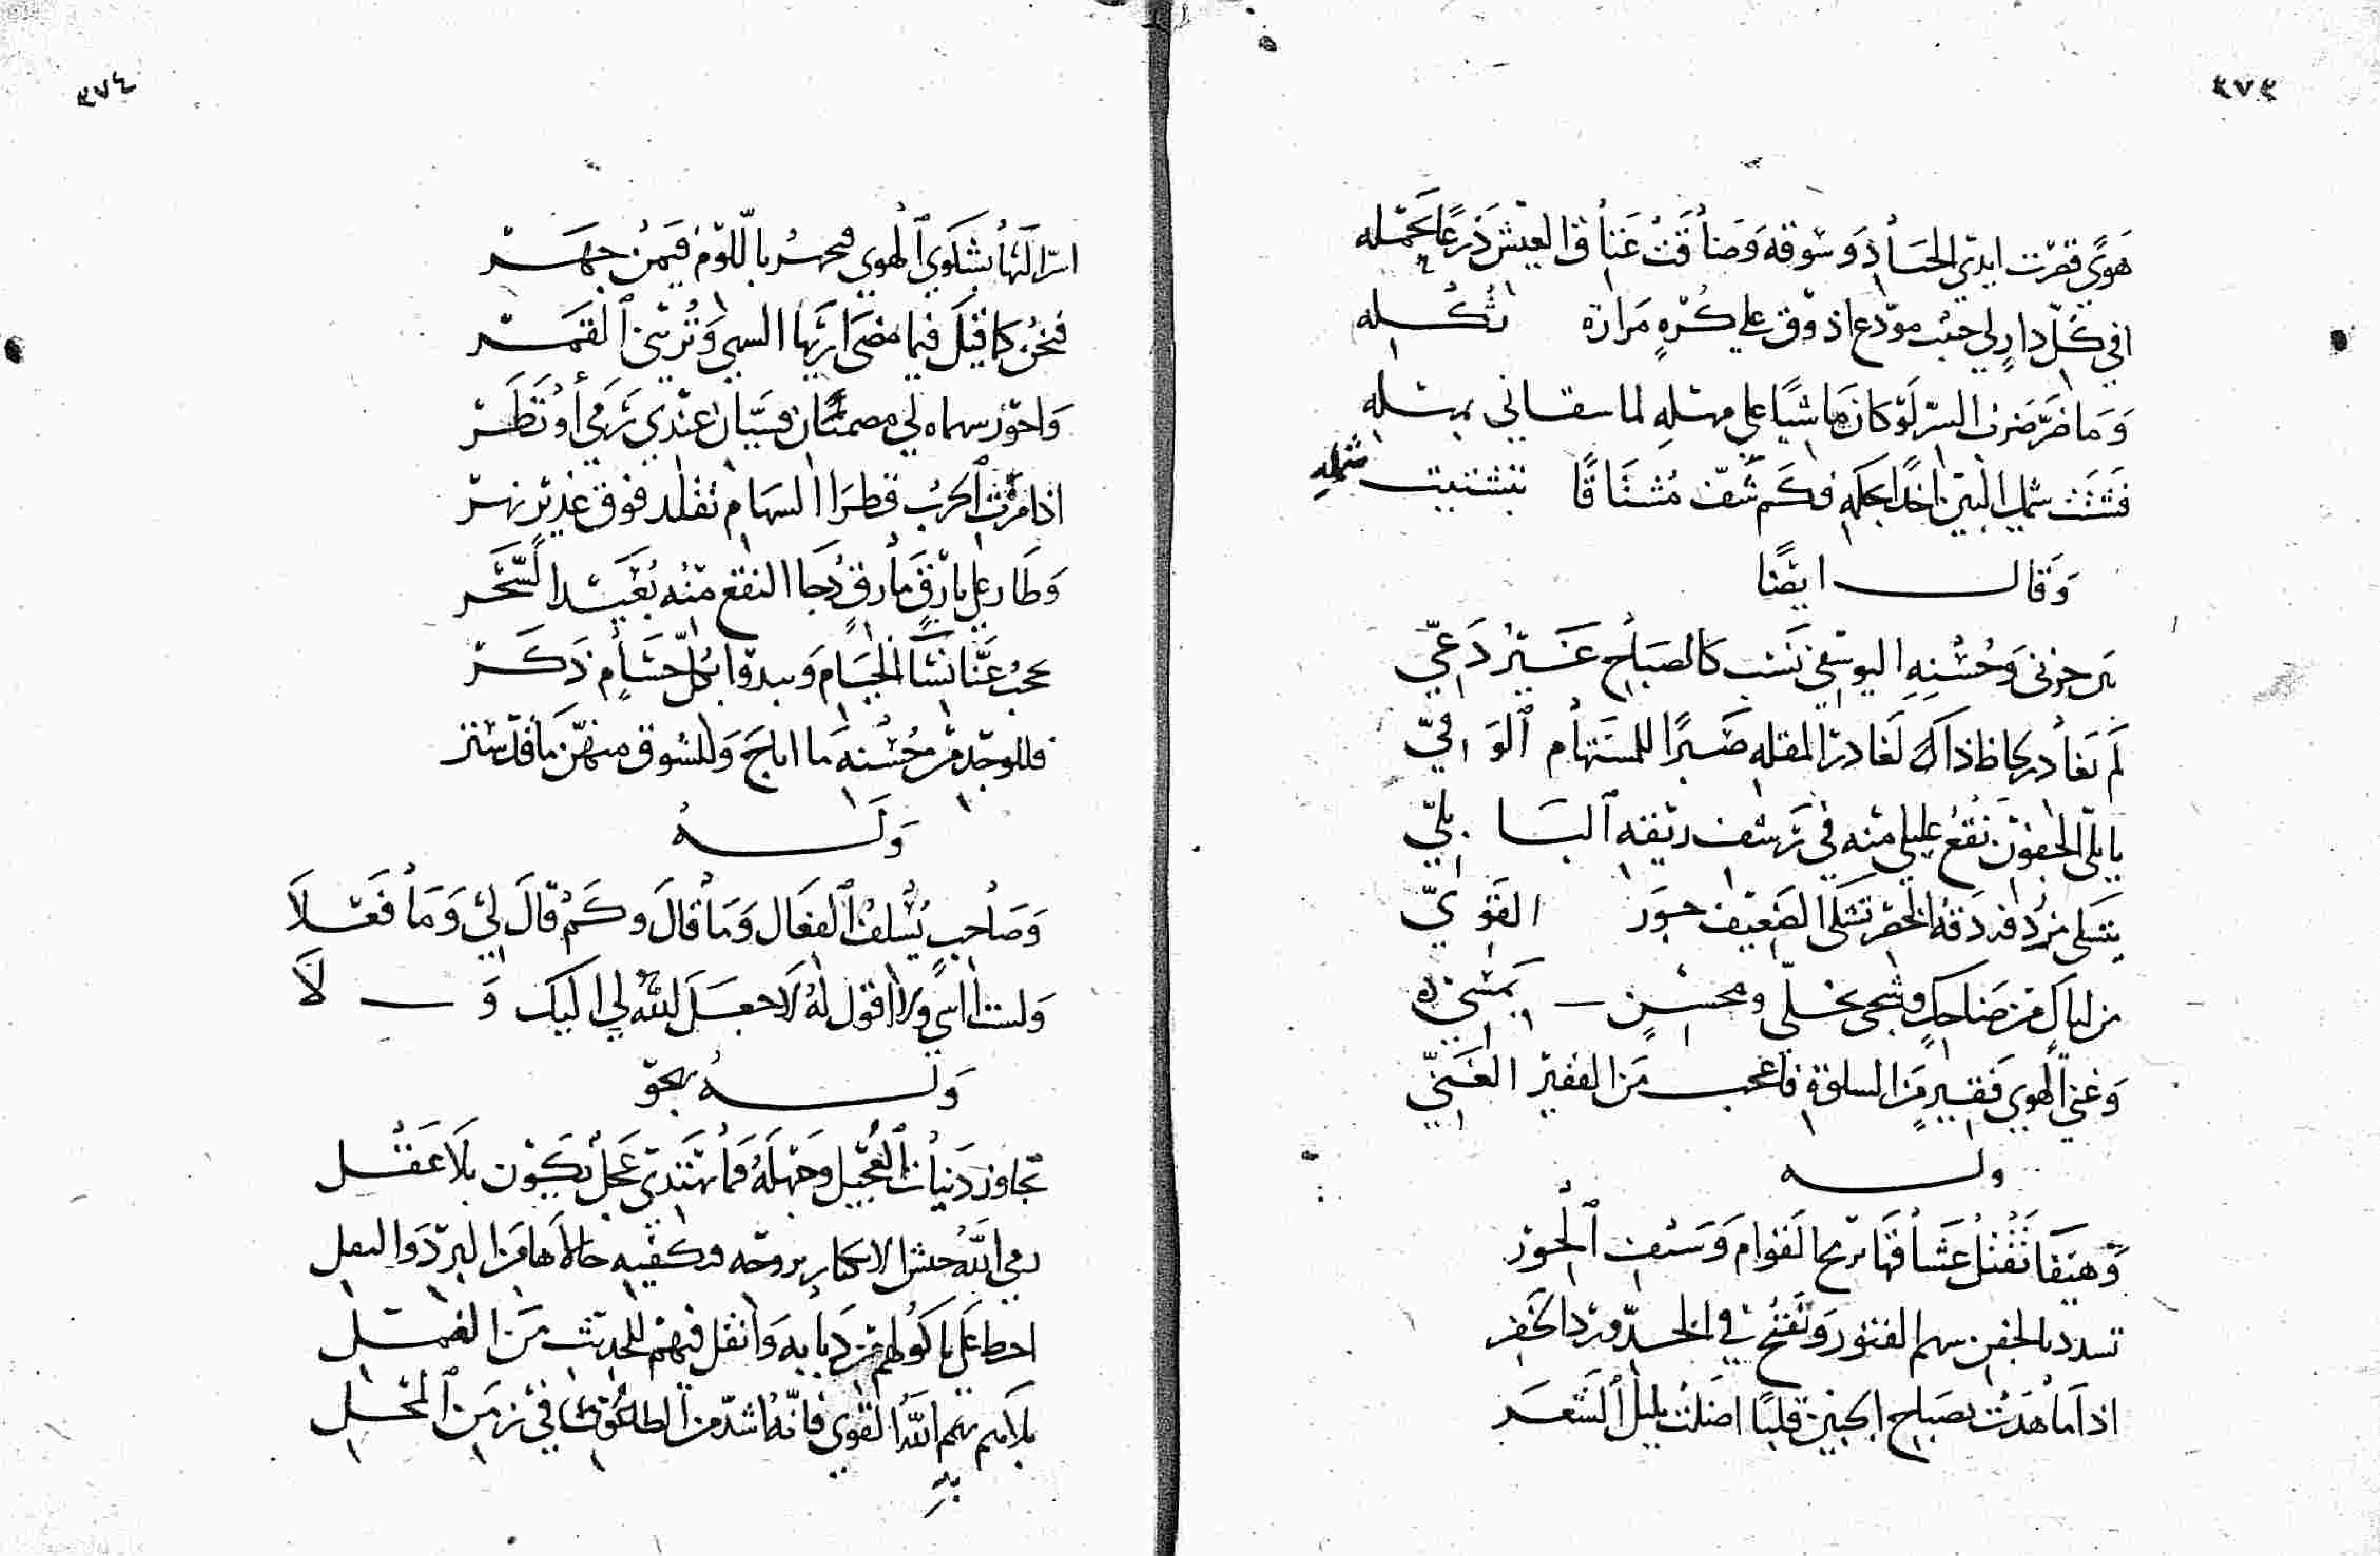 ٣٧٣
هوًى قصرت ايدي الحساد وسوقه وضاقت عناق العيش ذرعًا بحمله
افي كل دار لي حبيب مودع اذوق على كرهٍ مرارة ثكله
وما ضر صرف السر لو كان ماشيًا على مهله لما سقاني بمهله
فشتت شمل البين اخدا بحكمه فكم شف مشتاقًا بتشتيت شمله
وقال ايضًا
بين حزني وحسنه اليوسفي نسب كالصباح غير دعي
لم يغادر لحاظ ذاك لغادر المقله صبرًا للمستهام الوفي
بابلي الجفون نقع غليلي منه في رشف ريقه البابلي
يتشكى من ردفه دقة الخصر تشكى الضعيف جور القوي
من لباك من ضاحك وشجى بخلي ومحسن بمسي
وغني الهوى فقير من السلوة فاعجب من الفقير الغني
وله
وهيفا تقتل عشاقها برمح القوام وسيف الحور
تسدد بالجفن سهم الفتور وتفتح في الخد ورد الخفر
اذا ما هدت بصباح الجبين قلبًا اضلت بليل الشعر
٣٧٤
اسر لها بشكوى الهوى فجهر باللوم فيمن جهر
فنحن كما قيل فيما مضى اريها السهى وتريني القمر
واحور سهماه لي مصميان فسيان عندي رمى أو نظر
اذا مرت الحرب قطر السهام تقلد فوق غدير نهر
وطار على بارق مارق دجا النقع منه بعيد السحر
يحجب عنا نسا الخيام ويبدو بكل حسام ذكر
فللوجد من حسنه ما اباح وللشوق منهن ما قد ستر
وله
وصاحب يسلف الفعال وما قال وكم قال لي وما فعلا
ولست انسى ولا اقول له لا جعل الله لي اليك ولا
وله يهجو
تجاوز دنيات العجيل وجهله فما يهتدي عجل يكون بلا عقل
رمى الله جيش الابكار بروحه وكفيه حالاها من البرد والنعل
احط على ماكولهم من ذبابه واثقل فيهم للحديث من القمل
بلاهم بهم الله القوي فانه اشد من الطاعون في زمن المحل
به